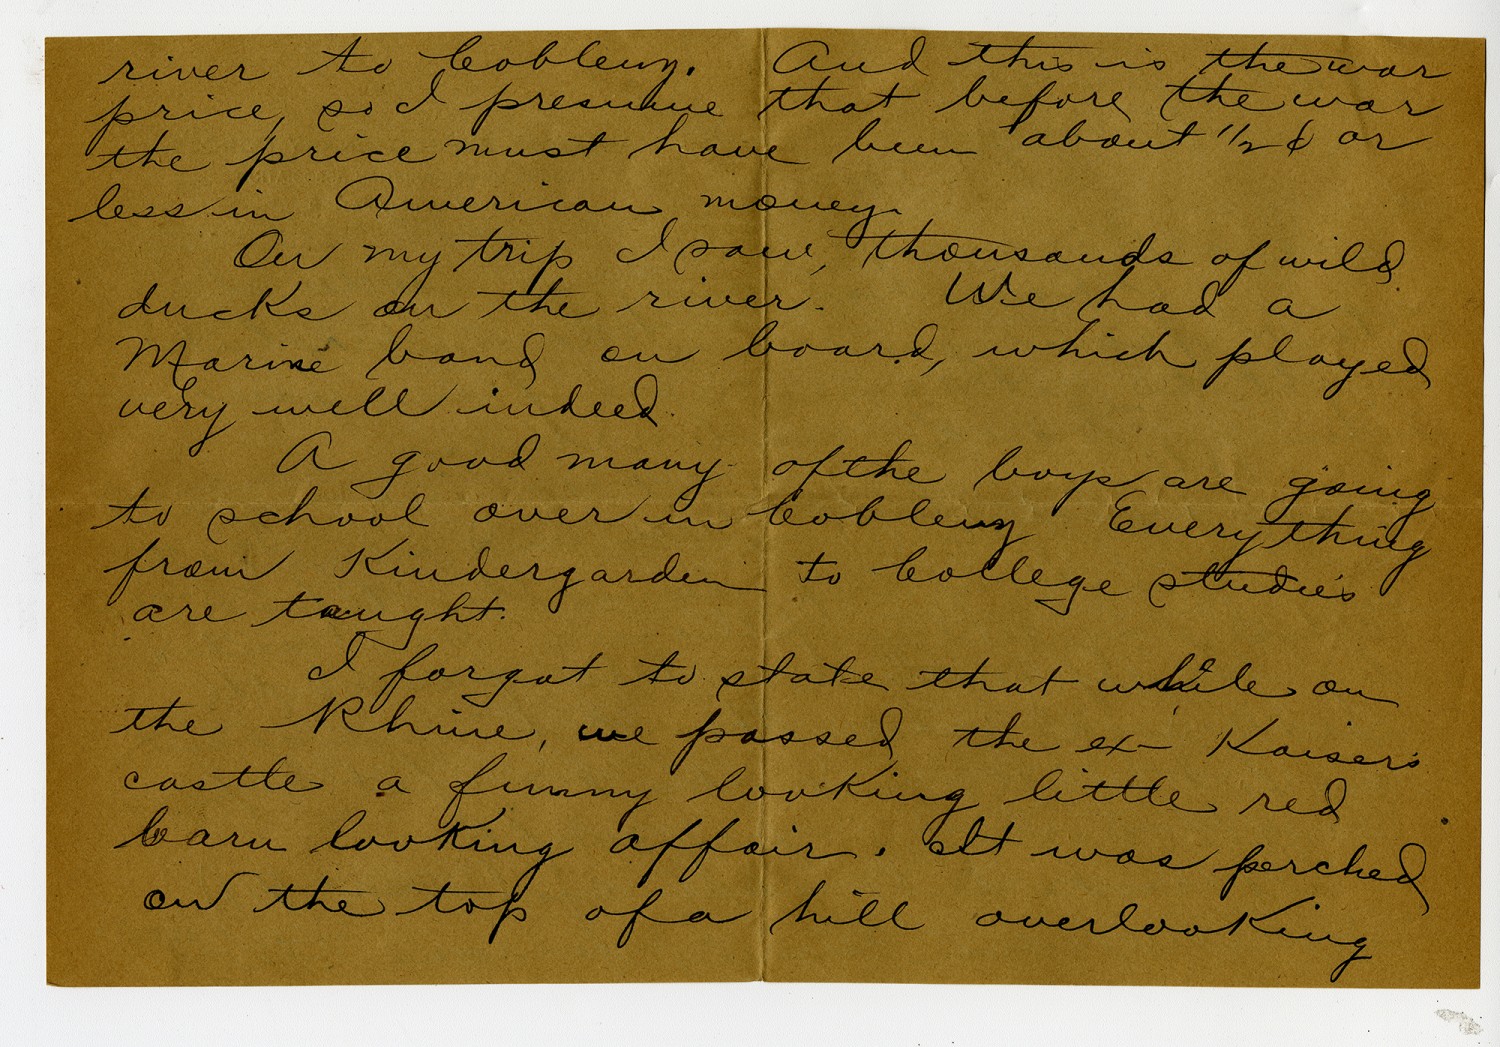 river to Coblenz. And this is the war
price, so I presume that before the war
the price must have been about 1/2 ¢ or
less in American money.
On my trip I saw, thousands of wild
ducks on the river. We had a
Marine band on board, which played
very well indeed.
A good many of the boys are going
to school over in Coblenz Everything
from Kindergarden to College studies
are taught.
I forgot to state that while on
the Rhine, we passed the ex-Kaisers
castle a funny looking little red
barn looking affair. It was perched
on the top of a hill overlooking